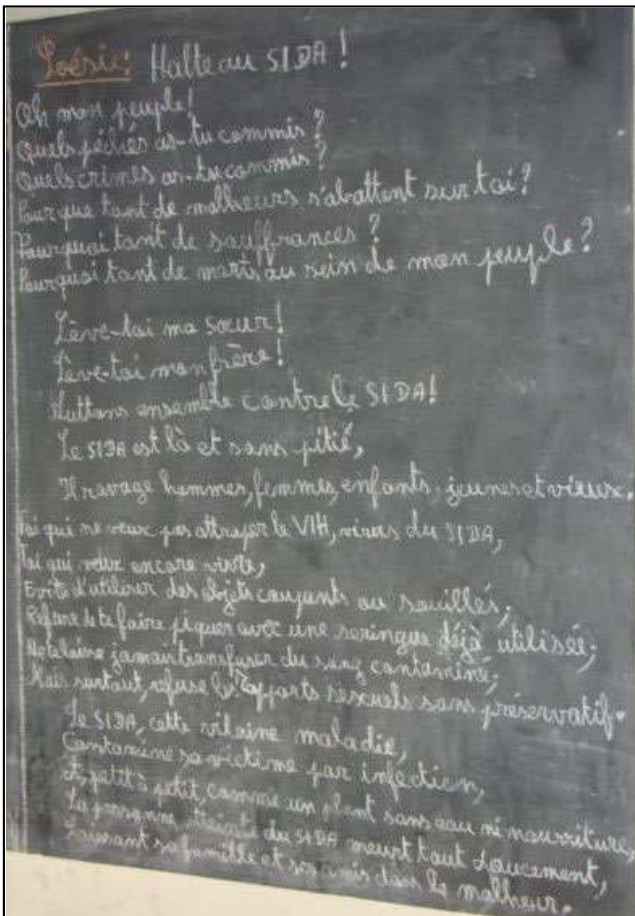 Poésie: Halte au SIDA !
Oh mon peuple!
Quels péchés as-tu commis ?
Quels crimes as-tu commis ?
Pour que tant de malheurs s'abattent sur toi ?
Pourquoi tant de souffrances ?
Pourquoi tant de morts au sein de mon peuple ?
Lève-toi ma sœur !
Lève-toi mon frère !
Luttons ensemble contre le SIDA!
Le SIDA est là et sans pitié,
Il ravage hommes, femmes, enfants, jeunes et vieux.
Toi qui ne veux pas attraper le VIH, virus du SIDA,
Toi qui veux encore vivre,
Evite d'utiliser des objets coupants ou souillés;
Refuse de te faire piquer avec une seringue déjà utilisée;
Ne te laisse jamais transfuser du sang contaminé;
Mais surtout, refuse les rapports sexuels sans préservatif.
Le SIDA, cette vilaine maladie,
Contamine sa victime par infection,
Et, petit à petit, comme un plant sans eau ni nourriture,
La personne atteinte du SIDA meurt tout doucement,
Laissant sa famille et ses amis dans le malheur.